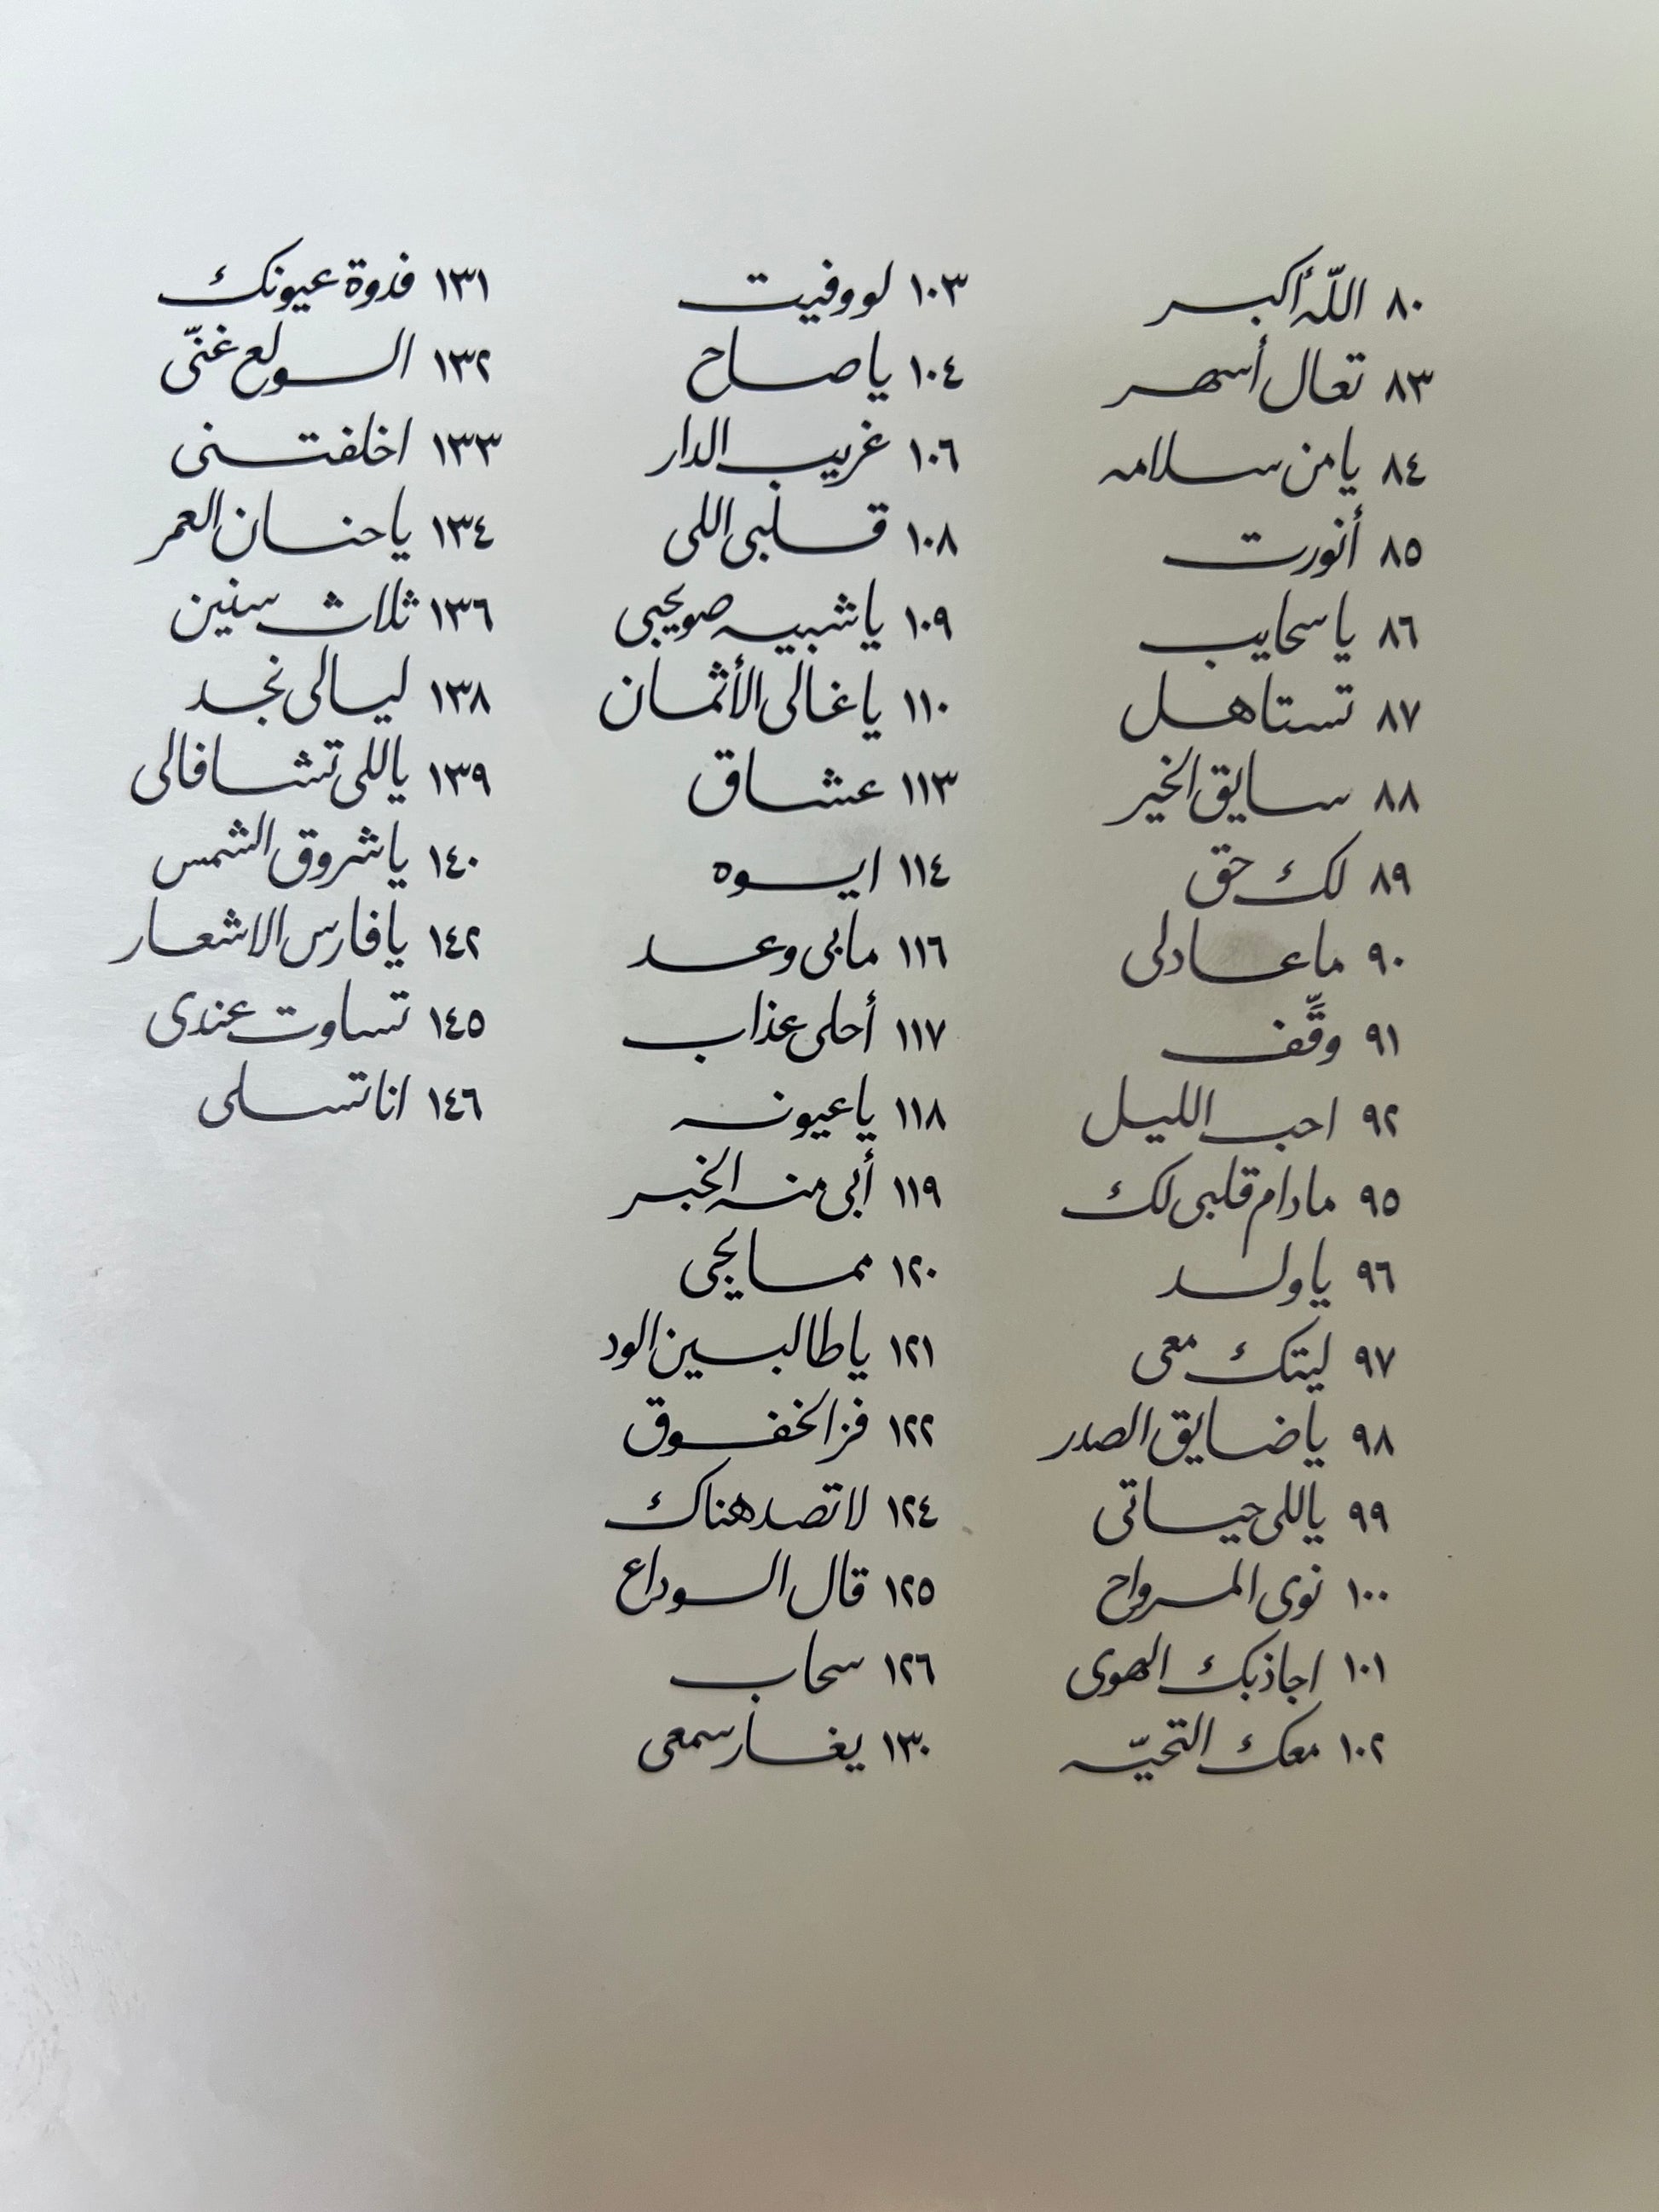 ٨٠ اللّه أكبر
٨٣ تعال أسهر
٨٤ يا من سلامه
٨٥ أنورت
٨٦ يا سحايب
٨٧ تستاهل
٨٨ سايق الخير
٨٩ لك حق
٩٠ ما عاد لى
٩١ وقِّف
٩٢ احب الليل
٩٥ مادام قلبى لك
٩٦ يا ولد
٩٧ ليتك معى
٩٨ يا ضايق الصدر
٩٩ ياللى حياتى
١٠٠ نوى المرواح
١٠١ اجاذبك الهوى
١٠٢ معك التحيّه
١٠٣ لو وفيت
١٠٤ يا صاح
١٠٦ غريب الدار
١٠٨ قلبى اللى
١٠٩ يا شبيه صويحبى
١١٠ يا غالى الأثمان
١١٣ عشاق
١١٤ ايوه
١١٦ مابى وعد
١١٧ أحلى عذاب
١١٨ يا عيونه
١١٩ أبى منه الخبر
١٢٠ مما يحى
١٢١ يا طالبين الود
١٢٢ فز الخفوق
١٢٤ لا تصد هناك
١٢٥ قال الوداع
١٢٦ سحاب
١٣٠ يغار سمعى
١٣١ فدوة عيونك
١٣٢ الولع غنّى
١٣٣ اخلفتنى
١٣٤ يا حنان العمر
١٣٦ ثلاث سنين
١٣٨ ليالى نجد
١٣٩ ياللى تشافالى
١٤٠ يا شروق الشمس
١٤٢ يا فارس الاشعار
١٤٥ تساوت عندى
١٤٦ انا تسلى